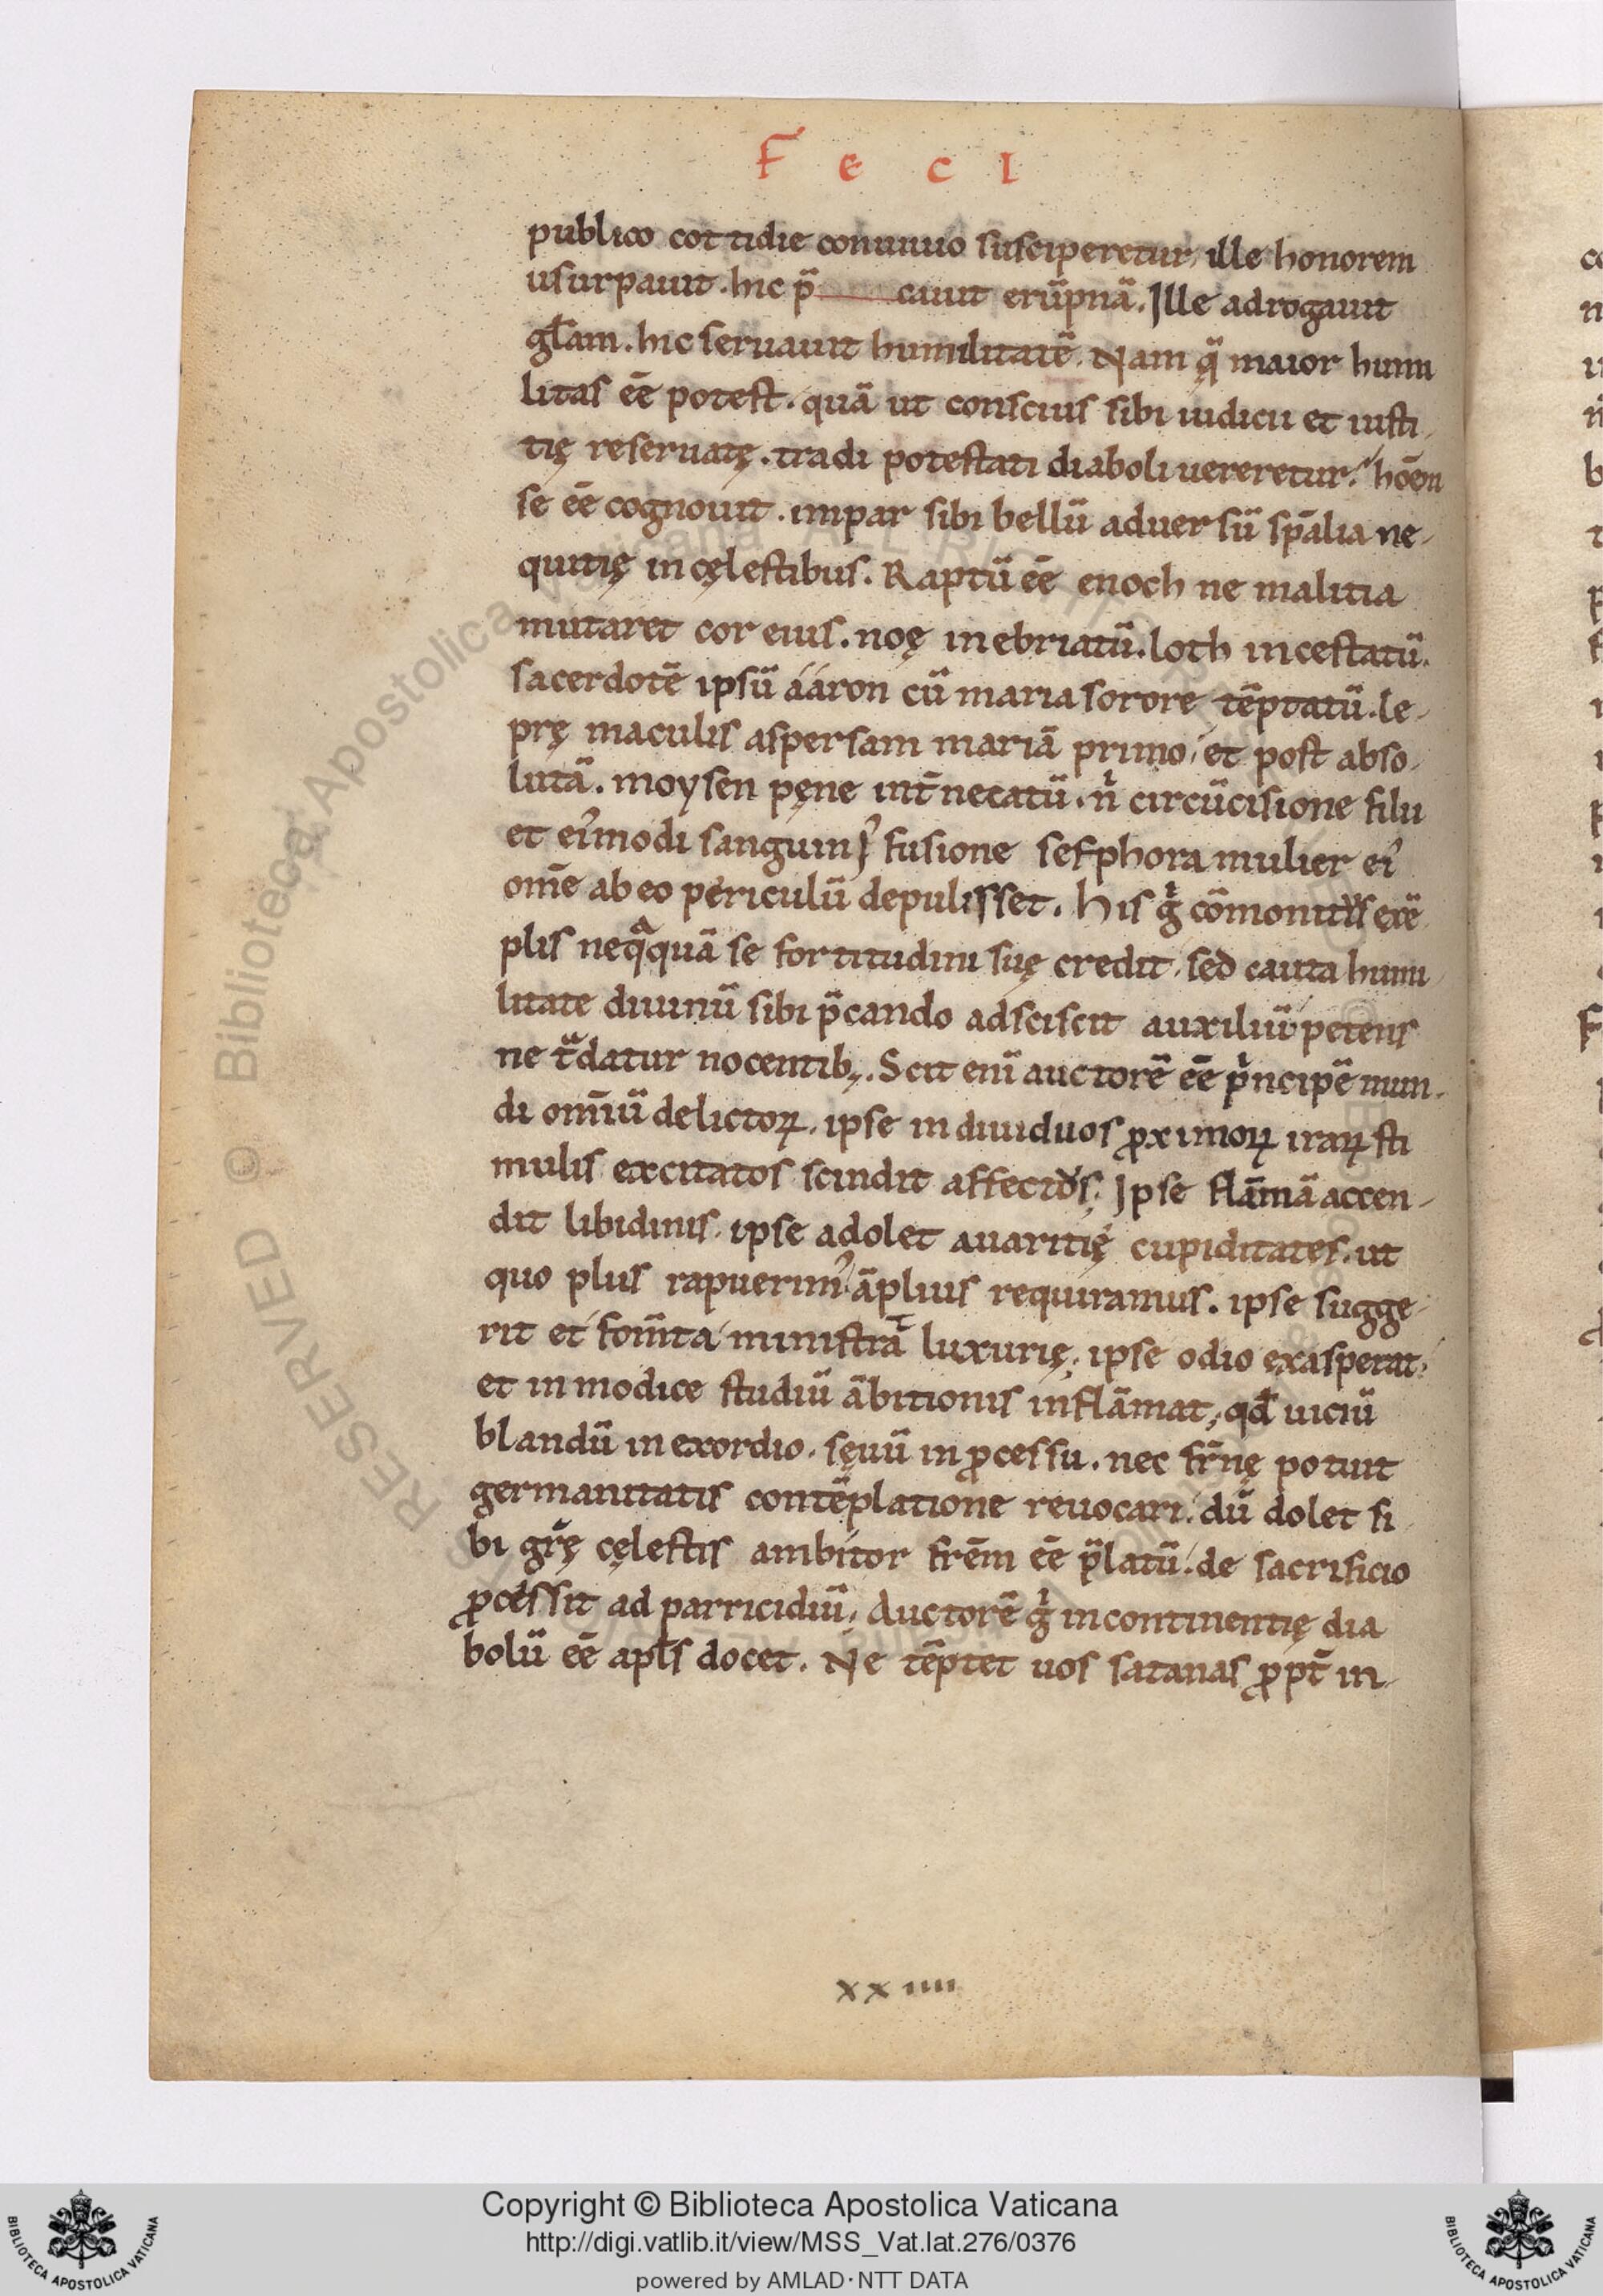 F E C I
publico cottidie conuiuio susciperetur, ille honorem
usurpauit. hic p̄ cauit erūpnā. Ille adrogauit
głam. hic seruauit humilitatē. Nam q̄ maior humi
litas eē potest. quā ut conscius sibi iudicii et iusti-
tię reseruatę. tradi potestati diaboli uereretur. hoēm
se eē cognouit. impar sibi bellū aduersū sp̄alia ne-
quitię in cęlestibus. Raptū eē enoch ne malitia
mutaret cor eius. noę inebriatū. loth incestatū.
sacerdotē ipsū ááron cū maria sorore tēptatū. le-
prę maculis aspersam mariā primo, et post abso-
lutā. moysen pęne int̄necatū. nͥ circūcisione filii
et eiꝰmodi sanguinꝭ fusione sefphora mulier eiꝰ
om̄e ab eo periculū depulisset. His gͥ cōmonitus exē
plis neqͣquā se fortitudini suę credit, sed cauta humi
litate diuinū sibi p̄cando adsciscit auxiliū petens
ne tͣdatur nocentibꝫ. Scit enī auctorē eē pͥncipē mun-
di om̄iū delictoꝝ. ipse indiuiduos ꝓximoꝝ iraꝝ sti
mulis excitatos scindit affectus; Ipse flāmā accen-
dit libidinis. ipse adolet auaritię cupiditates. ut
quo plus rapuerimꝰ āplius requiramus. ipse sugge-
rit et fom̄ta ministraͭ luxurię; ipse odio exasperat;
et inmodice studiū ābitionis inflāmat; qđ uiciū
blandū in exordio. sęuū in ꝓcessu. nec fr̄nę potuit
germanitatis contēplatione reuocari. dū dolet si
bi gr̄ę cęlestis ambitor frēm eē p̄latū. de sacrificio
ꝓcessit ad parricidiū. Auctorē gͥ incontinentię dia
bolū eē apłs docet. Ne tēptet uos satanas ꝓpt̄ in-
xxiiii
Copyright © Biblioteca Apostolica Vaticana
http://digi.vatlib.it/view/MSS_Vat.lat.276/0376
powered by AMLAD·NTT DATA
BIBLIOTECA APOSTOLICA VATICANA
BIBLIOTECA APOSTOLICA VATICANA